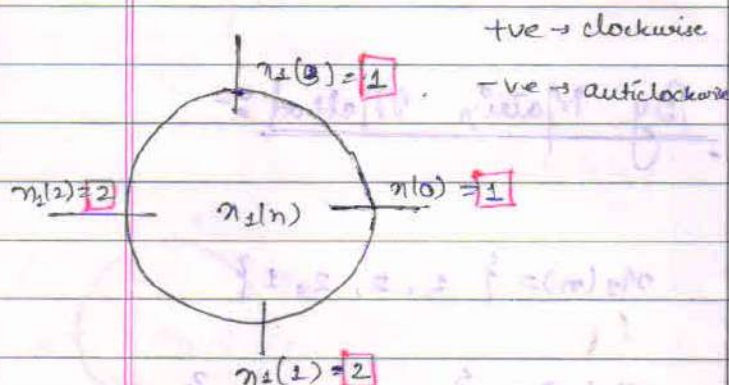 +ve → clockwise
x1(3) = 1
-ve → anticlockwise
x1(2) = 2
x1(n)
x(0) = 1
x1(1) = 2